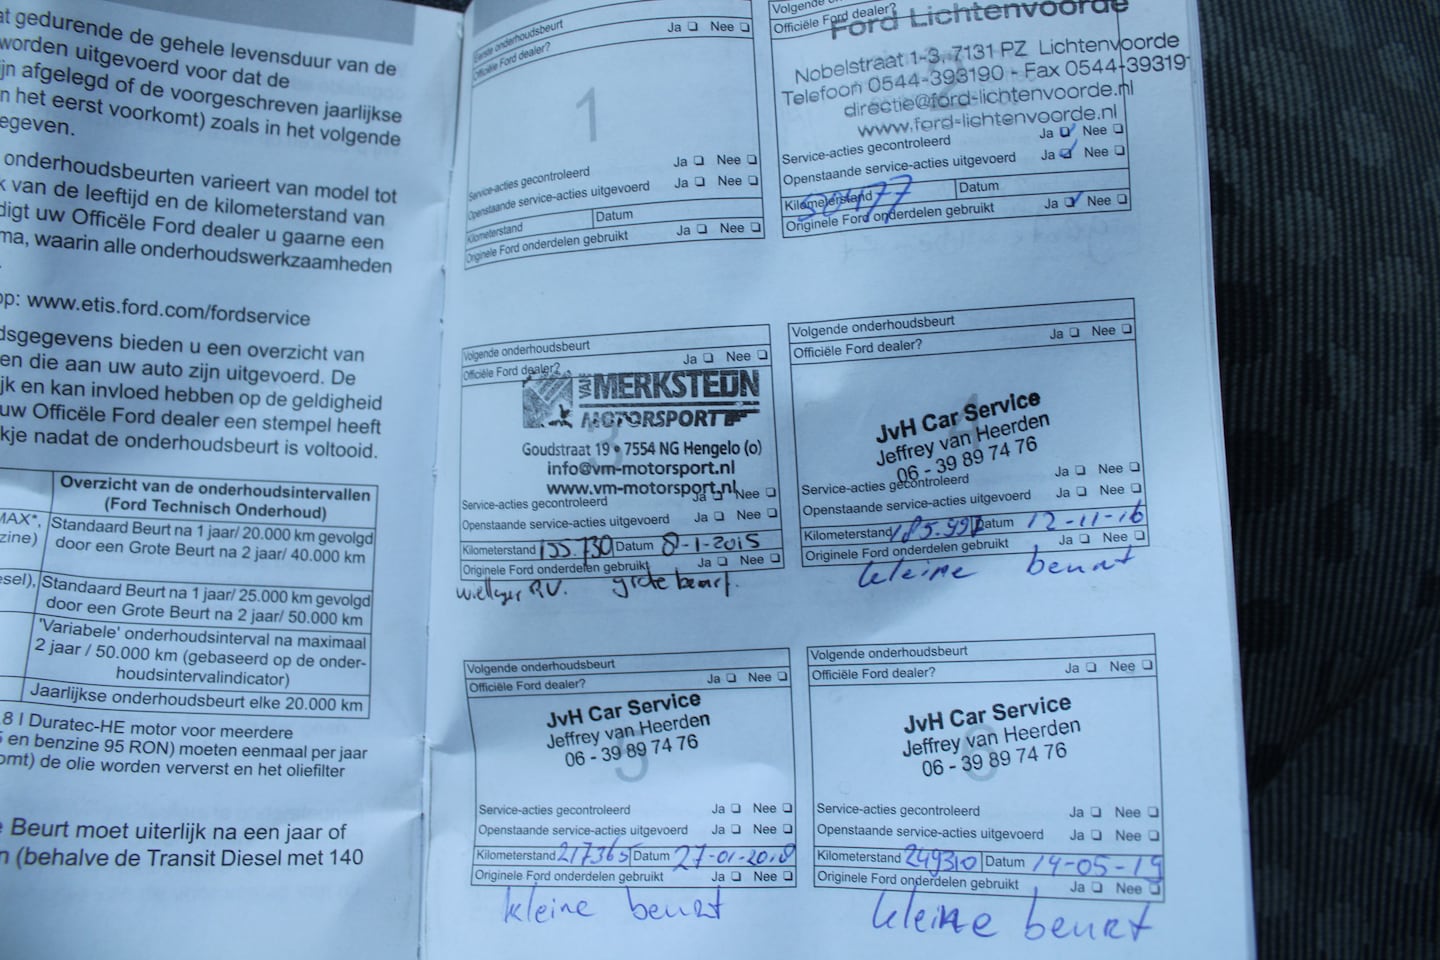 at gedurende de gehele levensduur van de
worden uitgevoerd voor dat de
ijn afgelegd of de voorgeschreven jaarlijkse
n het eerst voorkomt) zoals in het volgende
egeven.
onderhoudsbeurten varieert van model tot
k van de leeftijd en de kilometerstand van
digt uw Officële Ford dealer u gaarne een
ma, waarin alle onderhoudswerkzaamheden
op: www.etis.ford.com/fordservice
dsgegevens bieden u een overzicht van
en die aan uw auto zijn uitgevoerd. De
jk en kan invloed hebben op de geldigheid
uw Officële Ford dealer een stempel heeft
kje nadat de onderhoudsbeurt is voltooid.
Overzicht van de onderhoudsintervallen
(Ford Technisch Onderhoud)
MAX*,
zine)
Standaard Beurt na 1 jaar/ 20.000 km gevolgd
door een Grote Beurt na 2 jaar/ 40.000 km
esel),
Standaard Beurt na 1 jaar/ 25.000 km gevolgd
door een Grote Beurt na 2 jaar/ 50.000 km
'Variabele' onderhoudsinterval na maximaal
2 jaar / 50.000 km (gebaseerd op de onder-
houdsintervalindicator)
Jaarlijkse onderhoudsbeurt elke 20.000 km
,8 l Duratec-HE motor voor meerdere
5 en benzine 95 RON) moeten eenmaal per jaar
omt) de olie worden ververst en het oliefilter
e Beurt moet uiterlijk na een jaar of
n (behalve de Transit Diesel met 140
Eerste onderhoudsbeurt
Officiële Ford dealer? Ja Nee
1
Service-acties gecontroleerd Ja Nee
Openstaande service-acties uitgevoerd Ja Nee
Kilometerstand Datum
Originele Ford onderdelen gebruikt Ja Nee
Volgende
Officiële Ford dealer?
Ford Lichtenvoorde
Nobelstraat 1-3, 7131 PZ Lichtenvoorde
Telefoon 0544-393190 - Fax 0544-39319
directie@ford-lichtenvoorde.nl
www.ford-lichtenvoorde.nl
Service-acties gecontroleerd Ja Nee
Openstaande service-acties uitgevoerd Ja Nee
Kilometerstand Datum
Originele Ford onderdelen gebruikt Ja Nee
Volgende onderhoudsbeurt
Officiële Ford dealer? Ja Nee
3
VAN MERKSTEIJN
MOTORSPORT
Goudstraat 19 • 7554 NG Hengelo (o)
info@vm-motorsport.nl
www.vm-motorsport.nl
Service-acties gecontroleerd Ja Nee
Openstaande service-acties uitgevoerd Ja Nee
Kilometerstand 155.730 Datum 8-1-2015
Originele Ford onderdelen gebruikt Ja Nee
grote beurt.
Volgende onderhoudsbeurt
Officiële Ford dealer? Ja Nee
4
JvH Car Service
Jeffrey van Heerden
06 - 39 89 74 76
Service-acties gecontroleerd Ja Nee
Openstaande service-acties uitgevoerd Ja Nee
Kilometerstand 185.997 Datum 12-11-16
Originele Ford onderdelen gebruikt Ja Nee
kleine beurt
Volgende onderhoudsbeurt
Officiële Ford dealer? Ja Nee
JvH Car Service
Jeffrey van Heerden
06 - 39 89 74 76
5
Service-acties gecontroleerd Ja Nee
Openstaande service-acties uitgevoerd Ja Nee
Kilometerstand 217365 Datum 27-01-2018
Originele Ford onderdelen gebruikt Ja Nee
kleine beurt
Volgende onderhoudsbeurt
Officiële Ford dealer? Ja Nee
JvH Car Service
Jeffrey van Heerden
06 - 39 89 74 76
6
Service-acties gecontroleerd Ja Nee
Openstaande service-acties uitgevoerd Ja Nee
Kilometerstand 249310 Datum 14-05-19
Originele Ford onderdelen gebruikt Ja Nee
kleine beurt